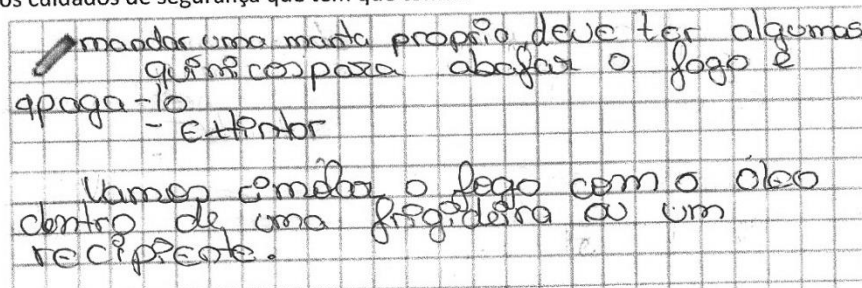 os cuidados de segurança que tem que
mandar uma manta proprio deve ter algumas
quimicos para abafar o fogo e
apaga-lo
- Extintor
Vamos o fogo com o óleo
dentro de uma frigideira ou um
recipiente.